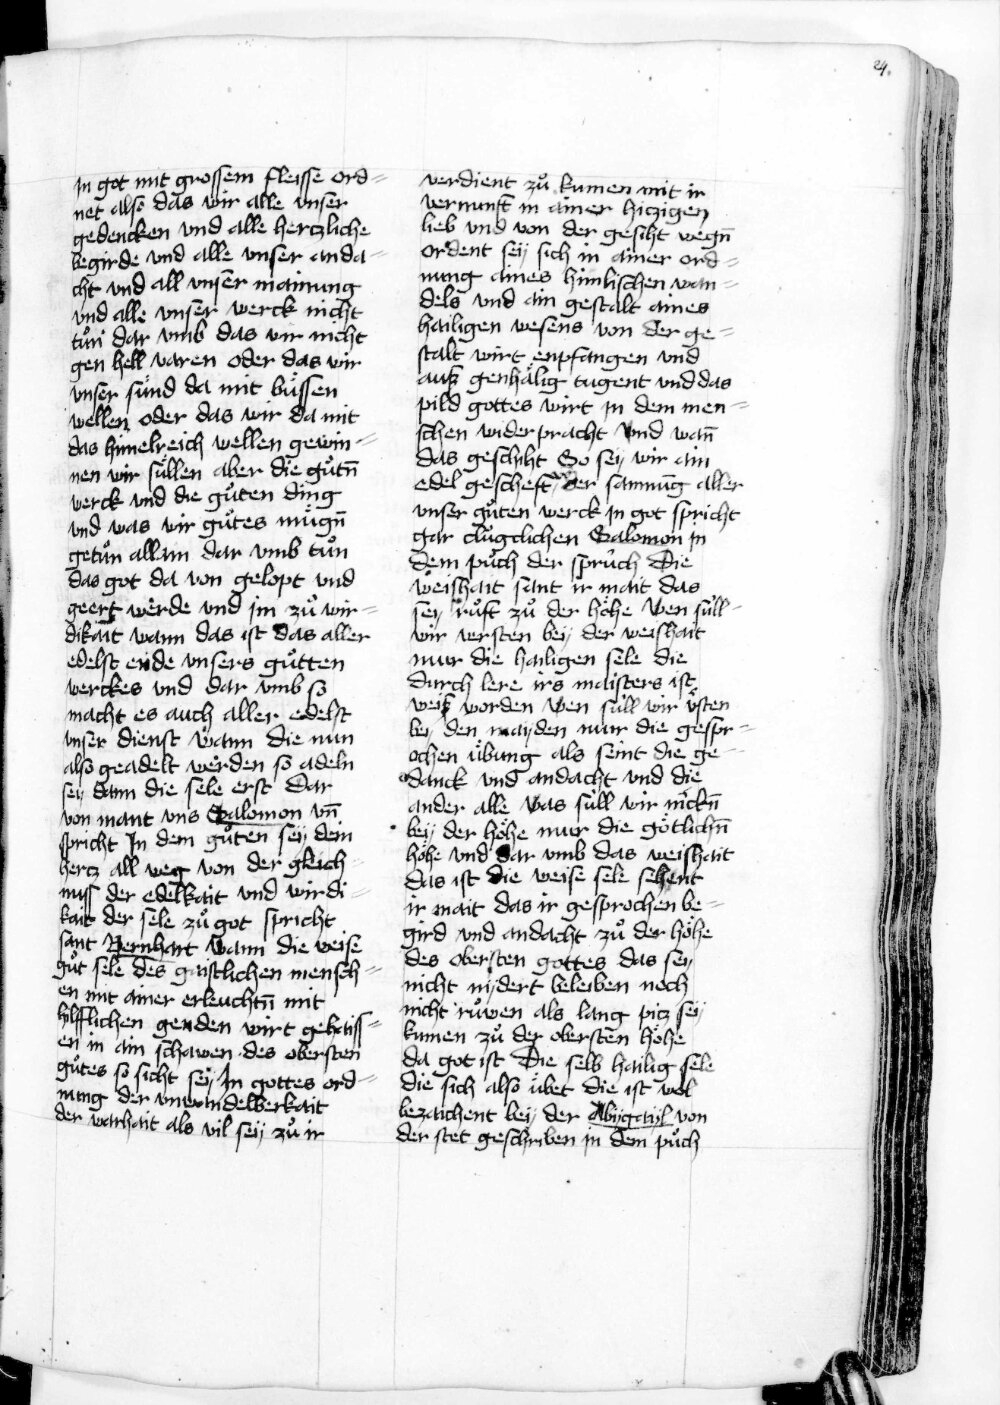 24.
in got mit grossem fleisse ord=
net also das wir alle vnser
gedencken vnd alle hertzliche
begirde vnd alle vnser anda=
cht vnd all vnser mainung
vnd alle vnser werck nicht
tůn dar vmb das wir nicht
gen hell varen oder das wir
vnser sünd da mit büssen
wellen oder das wir da mit
das himelreich wellen gewin=
nen wir süllen aber die gůtn̄
werck vnd die gůten ding
vnd was wir gůtes mügn̄
getůn allain dar vmb tůn
das got da von gelopt vnd
geert werde vnd im zů wir=
dikait wann das ist das aller
edelst ende vnsers gůtten
werckes vnd dar vmb so
macht es auch aller edelst
vnser dienst wann die nun
also geadelt werden so adeln
seÿ dann die sele erst Dar
von mant vns Salomon vn̄
spricht In dem gůten seÿ dein
hertz all weg von der gleich=
nuss der edelkait vnd wirdi=
kait der sele zů got spricht
sant Bernhart wann die weise
gůt sele des gaistlichen mensch=
en mit ainer erleuchtn̄ mit
hylfflichen genden wirt gehaiss=
en in ain schawen des obersten
gůtes so sicht seÿ In gottes ord=
nung der vnwandelberkait
der warhait als vil seÿ zů ir
verdient zů kumen mit ir
vernunft in ainer hiczigen
lieb vnd von der gesiht wegn̄
ordent seÿ sich in ainer ord=
nung aines himlischen wan=
dels vnd ain gestalt aines
hailigen wesens von der ge=
stalt wirt enpfangen vnd
auß genhälig tugent vnd das
pild gottes wirt in dem men=
schen widerpracht vnd wan̄
das geschiht So seÿ wir ain
edel gescheft der samnūg aller
vnser gůten werck In got spricht
gar clůgclichen Salomon in
dem půch der sprüch Die
weishait sant ir mait das
seÿ růft zů der höhe wen süll=
wir versten beÿ der weishait
nur die hailigen sele die
durch lere irs maisters ist
weiß worden wen süll wir v̈sten
beÿ den maÿden nur die gespr=
ochen übung als seint die ge=
danck vnd andacht vnd die
ander alle was süll wir mckn̄
beÿ der höhe nur die götlichn̄
höhe vnd dar vmb das weishait
das ist die weise sele sehent
ir mait das ir gesprochen be=
gird vnd andacht zů der höhe
des obersten gottes das seÿ
nicht nÿdert beleiben noch
nicht růwen als lang picz seÿ
kumen zů der obersten höhe
da got ist Die selb hailig sele
die sich also übet die ist wol
bezaichent beÿ der Abÿgaÿl von
der stet geschriben in dem půch